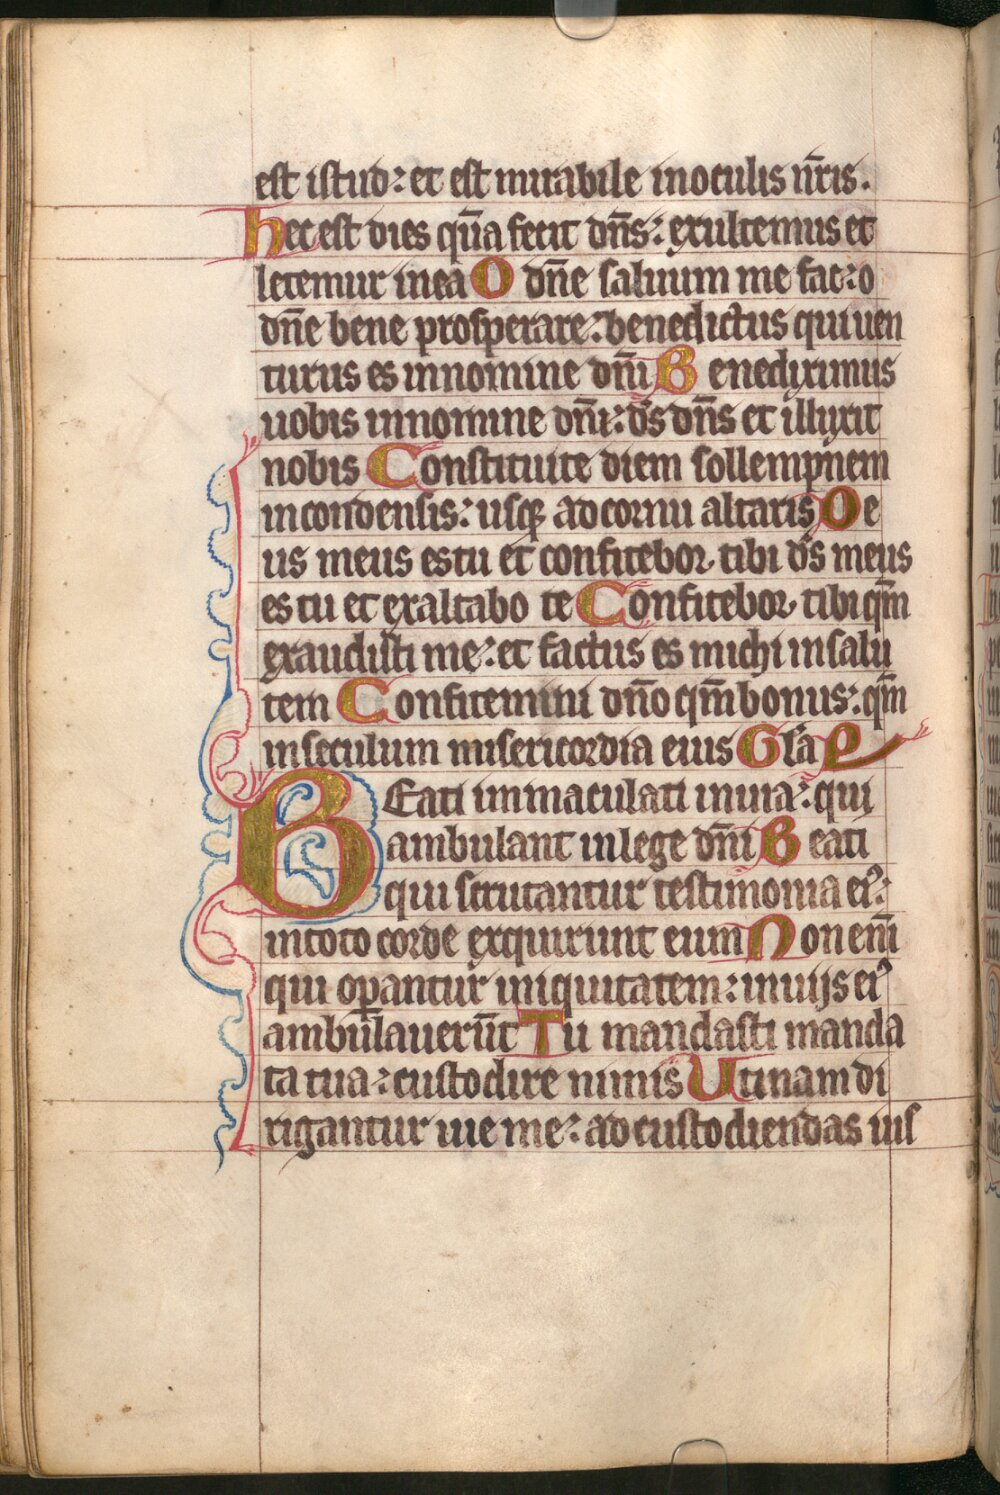 est istud: et est mirabile inoculis nr̄is.
Hec est dies quā fecit dn̄s: exultemus et
letemur inea O dn̄e saluum me fac: o
dn̄e bene prosperare: benedictus qui uen
turus es innomine dn̄i Benediximus
uobis innomine dn̄i: ds̄ dn̄s et illuxit
nobis Constituite diem sollempnem
incondensis: usqꝫ adcornu altaris De
us meus estu et confitebor tibi ds̄ meus
es tu et exaltabo te Confitebor tibi qm̄
exaudisti me: et factus es michi insalu
tem Confitemini dn̄o qm̄ bonus: qm̄
inseculum misericordia eius Gl̄a P
BEati immaculati inuia: qui
ambulant inlege dn̄i Beati
qui scrutantur testimonia eiꝰ:
intoto corde exquirunt eum Non enī
qui oꝑantur iniquitatem: inuijs eiꝰ
ambulauerūt Tu mandasti manda
ta tua: custodire nimis Utinam di
rigantur uie me: adcustodiendas ius